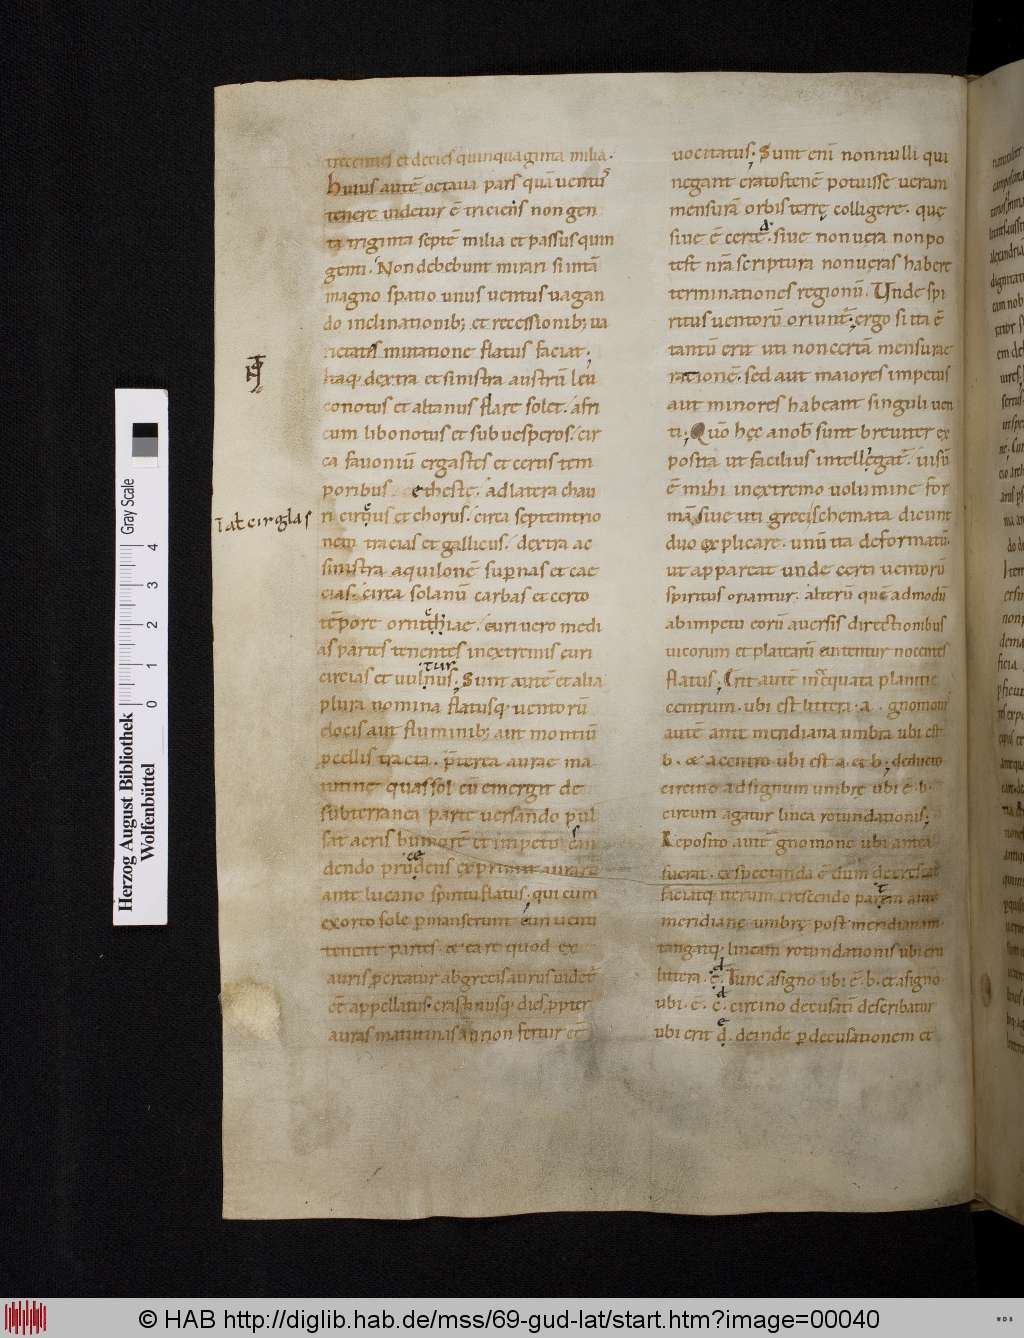 trecenties et decies quinquaginta milia.
huius autē octaua pars quā uentus
tenere uidetur ē tricieiis non gen
ta triginta septē milia et passus quin
genti. Non debebunt mirari si in tā
magno spatio unus uentus uagan
do inclinationib; et recessionib; ua
rietates mutatione flatus faciat;
Itaq; dextra et sinistra austrū leu
conotus et altanus flare solet. afri
cum libonotus et subuesperos. cir
ca fauoniū ergastes et certis tem
poribus etheste. ad latera chau
ri cirqius et chorus. circa septemtrio
nem tracias et gallicus. dextra ac
sinistra aquilonē supnas et cae
cias. circa solanū carbas et certo
tēpore ornithiae. euri uero medi
as partes tenentes in extremis euri
circias et uulnus; Sunt autē et alia
tur
plura nomina flatusq; uentorū
e locis aut fluminib; aut montiū
pcellis tracta. p̄terea aurae ma
tutine quas sol cū emergit de
subterranea parte uersando pul
sat aeris humorē et impetu can
dendo prudens exprimit auraꝛe
ce
ant lucano spiritu flatus. qui cum
exorto sole pmanserunt euri uenti
tenent partes. et ea re quod ex
auris pcreatur ab grecis aurus uidet̄
eē appellatus. crastinusq; dies ppter
auras matutinas aurion fertur eē
Iat cirglas
uocitatus; Sunt enī nonnulli qui
negant eratostenē potuisse ueram
mensurā orbis terrę colligere. que
siue ē certe. siue non uera non po
test nr̄a scriptura non ueras habere
terminationes regionū. Unde spi
ritus uentorū oriunt̄; ergo si ita ē
tantū erit uti non certā mensurae
rationē. sed aut maiores impetus
aut minores habeant singuli uen
ti; Quō hęc a nob̄ sunt breuiter ex
posita ut facilius intellegat̄. uisū
ē mihi in extremo uolumine for
mā siue uti greci schemata dicunt
duo explicare. unū ita deformatū.
ut appareat unde certi uentorū
spiritus oriantur. alterū quē admodū
ab impetu eorū auersis directionibus
uicorum et platearū euitentur nocentes
flatus; Erit autē in exquata planitie
centrum. ubi est littera. a. gnomonis
autē ante meridiana umbra ubi est
b. et a centro ubi est a. et b; deducto
circino ad signum umbrę ubi ē. b.
circum agatur linea rotundationis;
Reposito autē gnomone ubi antea
fuerat. expectanda ē dum decrescat
faciatq; iterum crescendo parem ante
t
meridianę umbrę post meridianam
tangatq; lineam rotundationis ubi erit
littera. c. Tunc a signo ubi ē. b. et a signo
d
ubi. ē. c. circino decusati describatur
d
ubi erit d. deinde p decusationem et
e